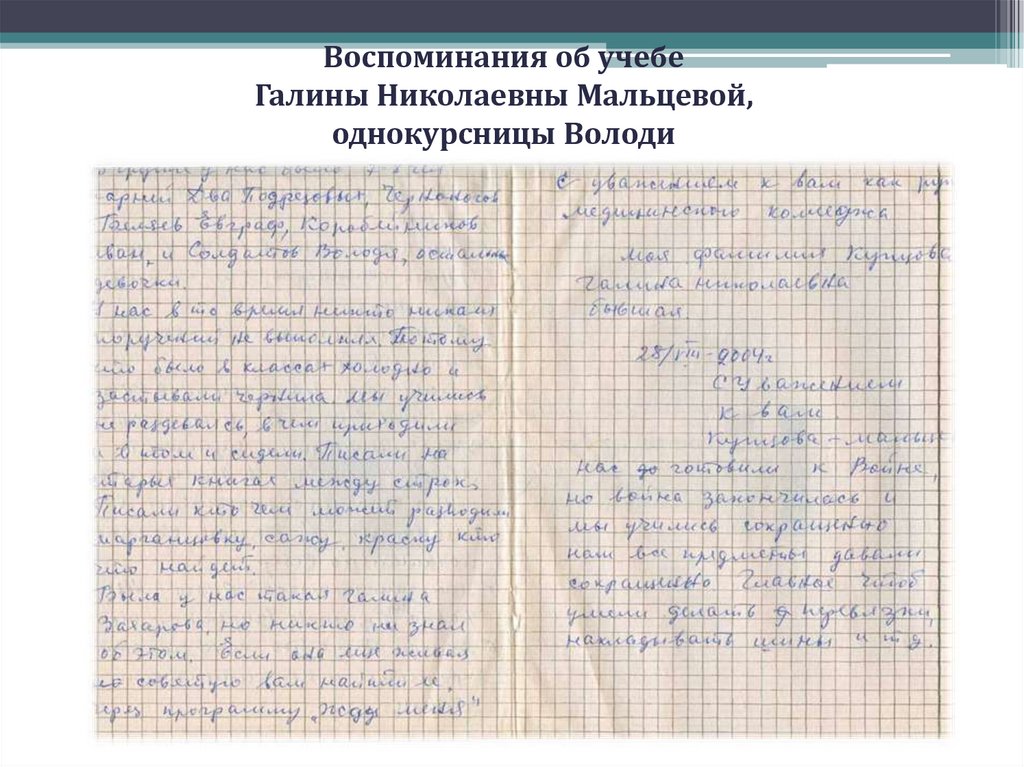 Воспоминания об учебе
Галины Николаевны Мальцевой,
однокурсницы Володи
у нас было
Два Подрезовых, Черноносов
Беляев Евграф, Коробейников
иван, и Солдатов Володя, остальные
девочки.
нас в то время никто никаких
поручений не выполнял. Потому
что было в классах холодно и
застывали чернила мы учились
не раздевались, в чем приходили
в том и сидели. Писали на
старых книгах между строк.
Писали кто чем может разводили
марганцовку, сажу, краску кто
что найдет.
Была у нас такая Галина
Захарова, но никто ни знал
об этом. Если она еще живая
советую вам найти ее,
через программу "Жди меня"
С уважением к вам как
медицинского колледжа
Моя фамилия Купцова
Галина николаевна
бывшая.
28/VIII-2004г
С уважением
к вам
Купцова-
нас до готовили к Войне,
но война закончилась и
мы учились сокращенно
нам все предметы давали
сокращинно Главное чтоб
умели делать перевязки,
накладывать шины и т д.